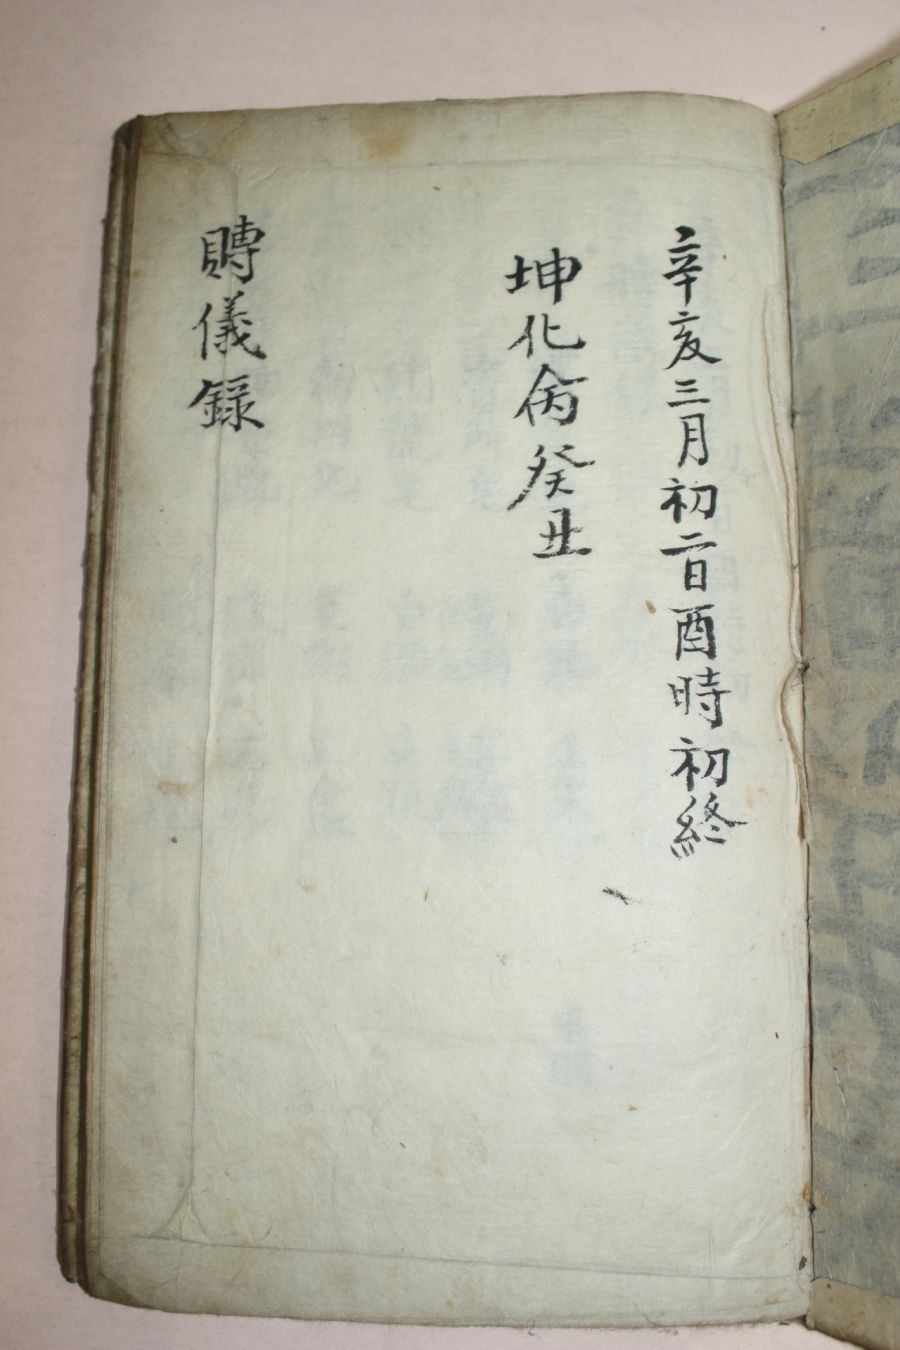 辛亥三月初二日酉時初終
坤化命癸丑
賻儀錄